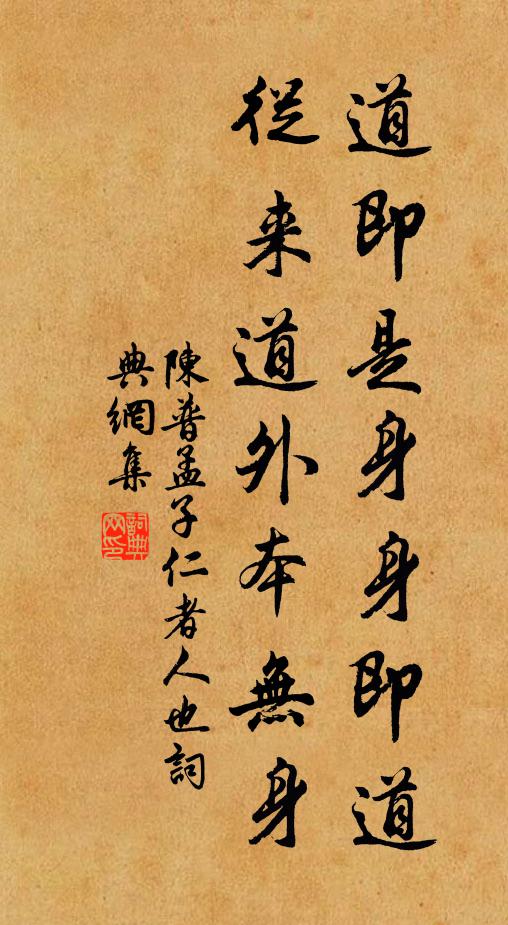 道即是身身即道
從来道外本無身
陳普孟子仁者人也詞
典網集
詞典
网印